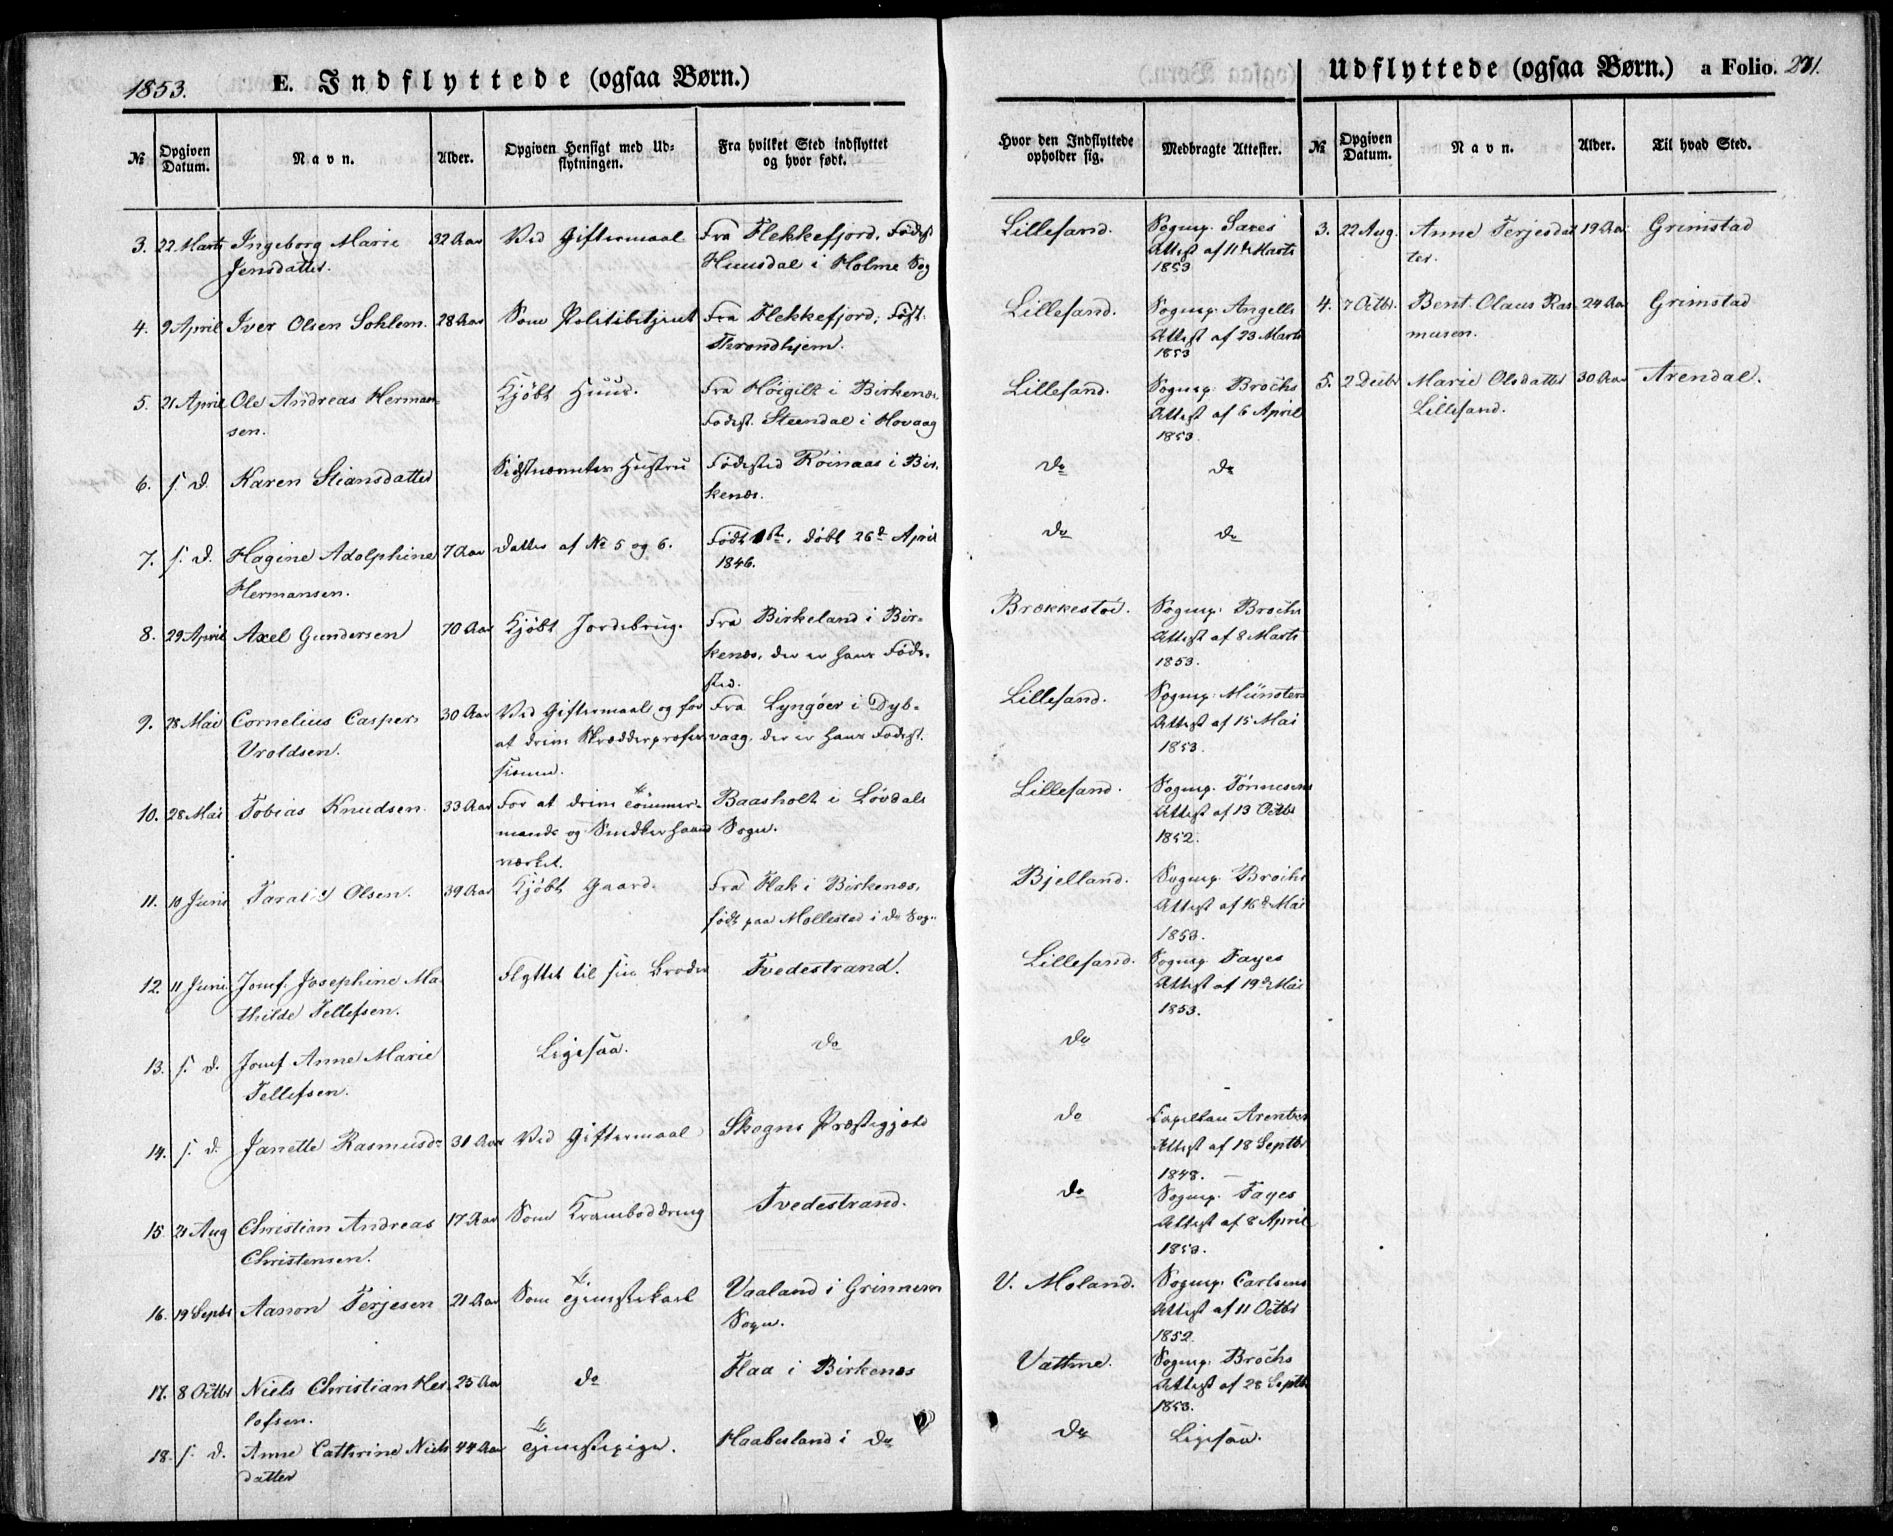 1853.
E. Indflyttede (ogsaa Børn.)
№
Opgiven Datum.
Navn.
Alder.
Opgiven Hensigt med Ud=
flytningen.
Fra hvilket Sted indflyttet
og hvor født.
3. 22 Marts Ingeborg Marie 32 Aar Ved Giftermaal Fra Flekkefjord, Fødest
Jensdatter. Huusdal i Holme Sog
4. 9 April Iver Olsen Soklem. 28 Aar Som Politibetjent Fra Flekkefjord, Født.
Throndhjem.
5. 21 April Ole Andreas Herman- Kjøbt Huus. Fra Høigilt i Birkenæs,
sen. Fødest. Steendal i Høvaag
6. s. d. Karen Stiansdatter Sidstnævntes Hustru Fødested Røinaas i Bir-
kenæs.
7. s. d. Hagine Adolphine 7 Aar Datter af № 5 og 6. Født 1ste, døbt 26de April
Hermansen. 1846.
8. 29 April Axel Gundersen 70 Aar Kjøbt Jordebrug. Fra Birkeland i Bir-
kenæs, der er hans Føde-
sted.
9. 28 Mai Cornelius Caspers 30 Aar Ved Giftermaal og for Fra Lyngøer i Dyb-
Vroldsen. at drive Skrædderprofes- vaag, der er hans Fødest.
sionen.
10. 28 Mai Tobias Knudsen. 33 Aar For at drive Tømmer- Baasholt i Løvdals
mands og Snedkerhaand Sogn.
værket.
11. 10 Juni Olsen. 39 Aar Kjøbt Gaard. Fra Flak i Birkenæs,
født paa Mollestad i do Sogn
12. 11 Juni Jomf. Josephine Ma- Flyttet til sin Broder Tvedestrand.
thilde Tellefsen.
13. s. d. Jomf Anne Marie Ligesaa. do
Tellefsen.
14. s. d. Janette Rasmusdr 31 Aar Ved Giftermaal Skogns Præstegjeld
15. 21 Aug Christian Andreas 17 Aar Som Kramboddreng Tvedestrand.
Christensen.
16. 19 Septbr Aanon Terjesen 21 Aar Som Tjenestekarl Vaaland i
Sogn.
17. 8 Octbr Niels Christian Her- 25 Aar do Flaa i Birkenæs
lofsen.
18. s. d. Anne Cathrine Niels 44 Aar Tjenestepige. Haabesland i do
datter
Udflyttede (ogsaa Børn.) a Folio. 271.
Hvor den Indflyttede
opholder sig.
Medbragte Attester.
№
Opgiven Datum.
Navn.
Alder.
Til hvad Sted.
Lillesand. Sognep. Saxes
Attest af 11te Marts
1853
Lillesand. Sognep. Angells
Attest af 23 Marts
1853
Lillesand. Sognep. Brochs
Attest af 6 April
1853.
do do
do do
Brækkestøe. Sognep. Brochs
Attest af 8 Marts
1853.
Lillesand. Sognep. Münsters
Attest af 15 Mai
1853.
Lillesand. Sognep. Tønnesens
Attest af 13 Octbr
1852.
Bjelland. Sognep. Brochs
Attest af 16de Mai
1853.
Lillesand. Sognep. Fayes
Attest af 19de Mai
1853.
do
do Capellan Arentzes
Attest af 18 Septbr
1848.
do Sognep. Fayes
Attest af 8 April
1853.
V. Moland. Sognep. Carlsens
Attest af 11 Octbr
1852.
Vattne. Sognep. Brochs
Attest af 28 Septbr
1853.
do Ligesaa.
3. 22 Aug. Anne Terjesdat 19 Aar Grimstad
ter.
4. 7 Octbr. Bent Olaus Ras- 24 Aar Grimstad
musen.
5. 2 Decbr Marie Olsdatter 30 Aar Arendal.
Lillesand.